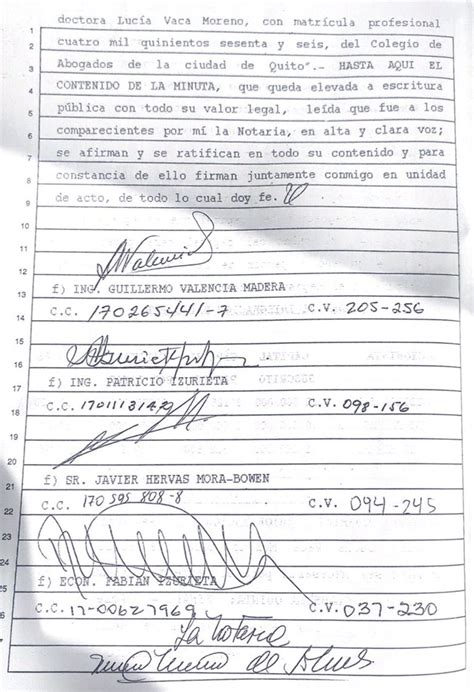 doctora Lucía Vaca Moreno, con matrícula profesional
1
cuatro mil quinientos sesenta y seis, del Colegio de
2
Abogados de la ciudad de Quito".- HASTA AQUI EL
3
CONTENIDO DE LA MINUTA, que queda elevada a escritura
4
pública con todo su valor legal, leída que fue a los
5
comparecientes por mí la Notaria, en alta y clara voz;
6
se afirman y se ratifican en todo su contenido y para
7
constancia de ello firman juntamente conmigo en unidad
8
de acto, de todo lo cual doy fe.
9
10
11
Valencia
12
f) ING. GUILLERMO VALENCIA MADERA
13
C.C. 170265441-7 C.V. 205-256
14
15
16
f) ING. PATRICIO IZURIETA
17
C.C. C.V. 098-156
18
19
20
f) SR. JAVIER HERVAS MORA-BOWEN
21
C.C. 170 595 808-8 C.V. 094-245
22
23
24
f) ECON. FABIAN IZURIETA
25
C.C. 17-00627969 C.V. 037-230
La Notaria